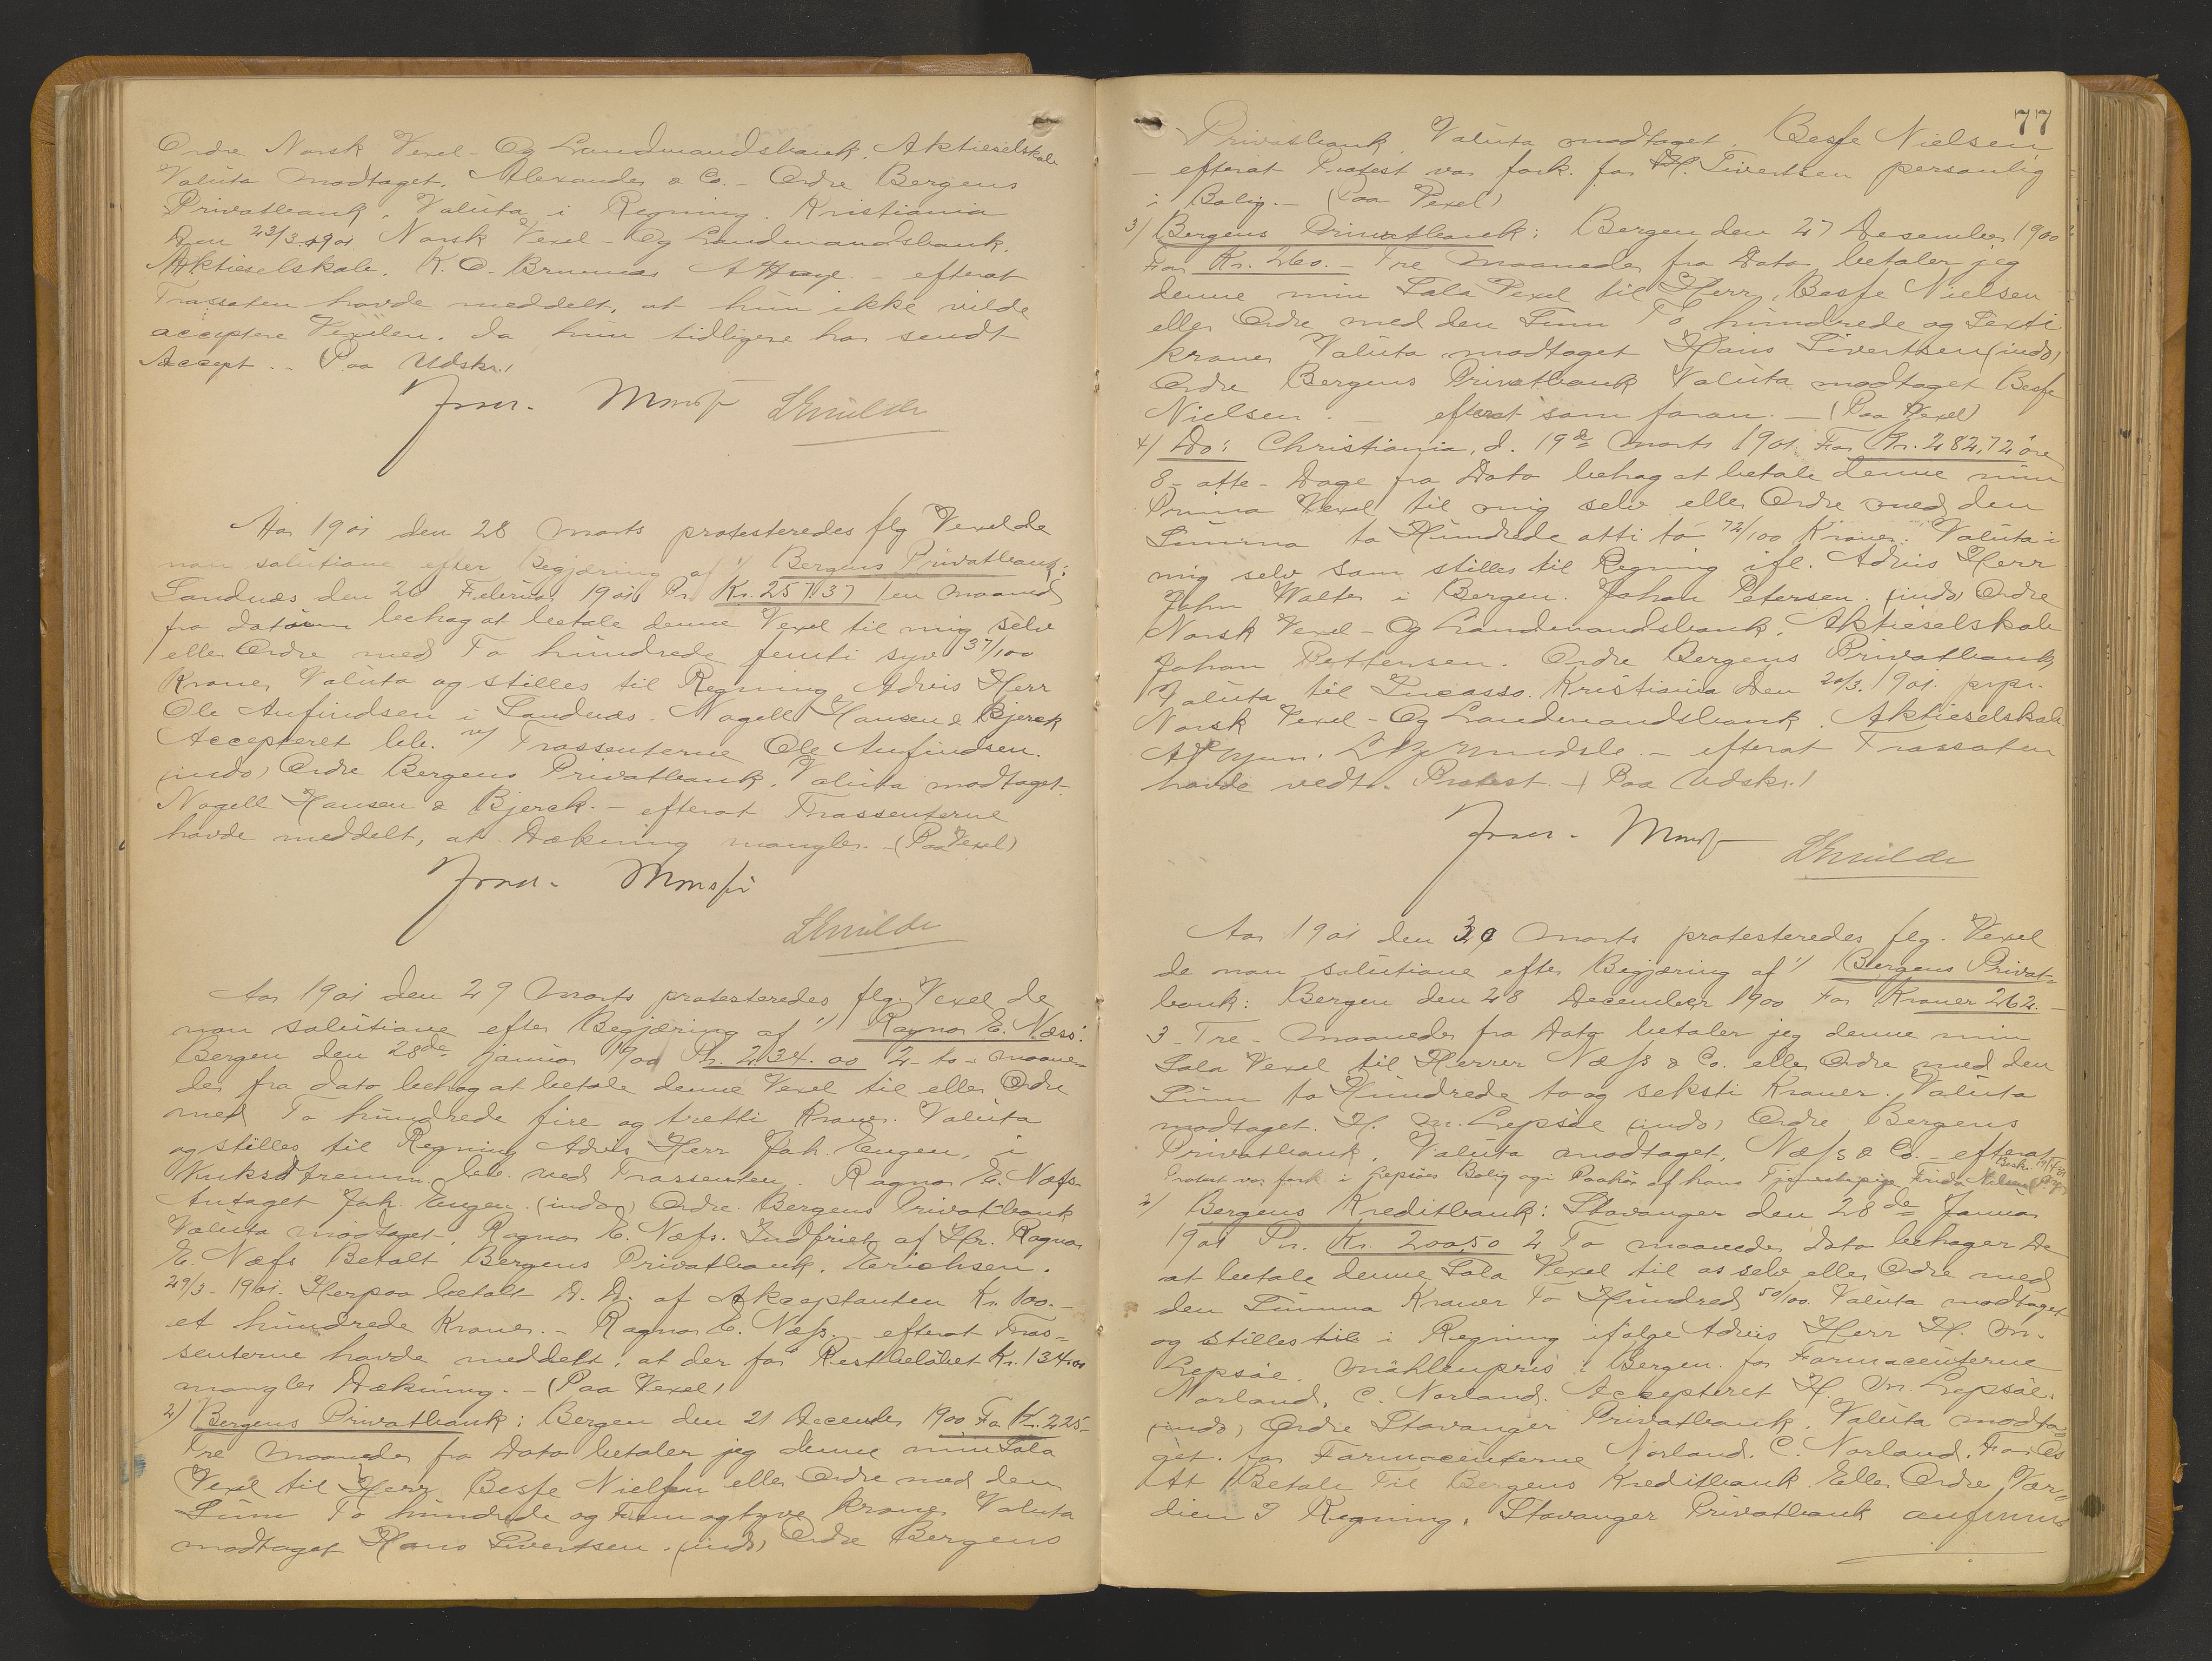 Ordre Norsk Vexel - Og Landmandsbank. Aktieselskab
Valüta modtaget. Alexander & Co. - Ordre Bergens
Privatbank. Valüta i Regning. Kristiania
den 23/3 1901 Norsk Vexel - Og Landmandsbank.
Aktieselskab. K. O. - efterat
Trassaten havde meddelt, at hün ikke vilde
acceptere Vexelen, da hün tidligere har sendt
Accept. - Paa Udskr.)
Aar 1901 den 28 Marts protesteredes flg Vexel de
non solütione efter Begjæring af 1/ Bergens Privatbank:
Sandnæs den 20 Februar 1901 Pr. Kr. 257.37 1 en Maaned
fra dato behag at betale denne Vexel til mig selv
eller Ordre med To hündrede femti syv 37/100
Kroner Valüta og stilles til Regning Advis Herr
Ole Anfindsen i Sandnæs. Nagell Hansen & Bjerck
Accepteret bet. v/ Trassenterne Ole Anfindsen.
(indo) Ordre Bergens Privatbank. Valüta modtaget.
Nagell Hansen & Bjerck. - efterat Trassenterne
havde meddelt, at Dækning mangler. - (Paa Vexel)
Aar 1901 den 29 Marts protesteredes flg. Vexel de
non solütione efter Begjæring af 1/ Ragnar E. Næss:
Bergen den 28de Januar 1900 Kr. 234.00 2 - to - maane-
der fra dato behag at betale denne Vexel til eller Ordre
med To hündrede fire og tretti Kroner. Valüta
og stilles til Regning Advis Herr Joh. Engen, i
bet. ved Trassenten. Ragnar E. Næss
Antaget Joh. Engen. (indo) Ordre Bergens Privatbank
Valüta modtaget. Ragnar E. Næss. Indfriet af Hr. Ragnar
E. Næss Betalt Bergens Privatbank. Erichsen.
29/3 - 1901. Herpaa betalt D. D. af Akceptanten Kr. 100.-
et hündrede Kroner. - Ragnar E. Næss. - efterat Tras-
senterne havde meddelt, at der for Restbeløbet Kr. 134.00
mangler Dækning. - (Paa Vexel)
2) Bergens Privatbank: Bergen den 21 Decembr 1900 For Kr. 225.-
Tre Maaneder fra Dato betaler jeg denne min Sola
Vexel til Herr Besse Nielsen eller Ordre med den
Süm To hündrede og Fem og tyve Kroner Valüta
modtaget Hans Sivertsen. (indo) Ordre Bergens
77
Privatbank. Valüta modtaget. Besse Nielsen
- efterat Protest var fork. for H. Sivertsen personlig
i Bolig. - (Paa Vexel)
3) Bergens Privatbank: Bergen den 27 Desember 1900
For Kr. 260. - Tre Maaneder fra Dato betaler jeg
denne min Sola Vexel til Herr Besse Nielsen
eller Ordre med den Süm To hündrede og Sexti
kroner Valüta modtaget Hans Sivertsen (indo)
Ordre Bergens Privatbank Valüta modtaget Besse
Nielsen. - efterat som foran. - (Paa Vexel)
4) Do: Christiania, d. 19de Marts 1901. For Kr. 282,72 øre
8 - otte - Dage fra Dato behag at betale denne min
Prima Vexel til mig selv eller Ordre med den
Sümma to Hündrede otti to 72/100 Kroner. Valüta i
mig selv som stilles til Regning ifl. Advis Herr
John Walter i Bergen. Johan Petersen. (indo) Ordre
Norsk Vexel - Og Landmandsbank. Aktieselskab
Johan Pettersen. Ordre Bergens Privatbank
Valüta til Incasso. Kristiania den 20/3. 1901. prpr.
Norsk Vexel - Og Landmandsbank. Aktieselskab
- efterat Trassaten
havde vedt. Protest. - (Paa Udskr.)
Aar 1901 den 30 Marts protesteredes flg. Vexel
de non solütione efter Begjæring af 1/ Bergens Privat-
bank: Bergen den 28 December 1900 For Kroner 262.-
3 - Tre - Maaneder fra Dato betaler jeg denne min
Sola Vexel til Herrer Næss & Co. eller Ordre med den
Süm to Hündrede to og seksti Kroner. Valüta
modtaget. H. M. Lepsøe (indo) Ordre Bergens
Privatbank. Valüta modtaget. Næss & Co. - efterat
Protest var fork. i Lepsøes Bolig og i Paahør af hans Tjenestepige Frida Nilsen
2) Bergens Kreditbank: Stavanger den 28de Januar
1901 Pr. Kr. 200,50 2 To maaneder dato behager De
at betale denne Sola Vexel til os selv eller Ordre med
den Sümma Kroner To Hündred 50/100. Valüta modtaget
og stilles til i Regning ifølge Advis Herr H. M.
Lepsøe. Møhlenpris i Bergen. for Farmaceüterne
Norland, C. Norland. Accepteret H. M. Lepsøe.
(indo) Ordre Stavanger Privatbank. Valüta modta-
get. for Farmaceüterne Norland. C. Norland. For Os
At Betale Til Bergens Kreditbank Eller Ordre, Vær-
dien I Regning, Stavanger Privatbank